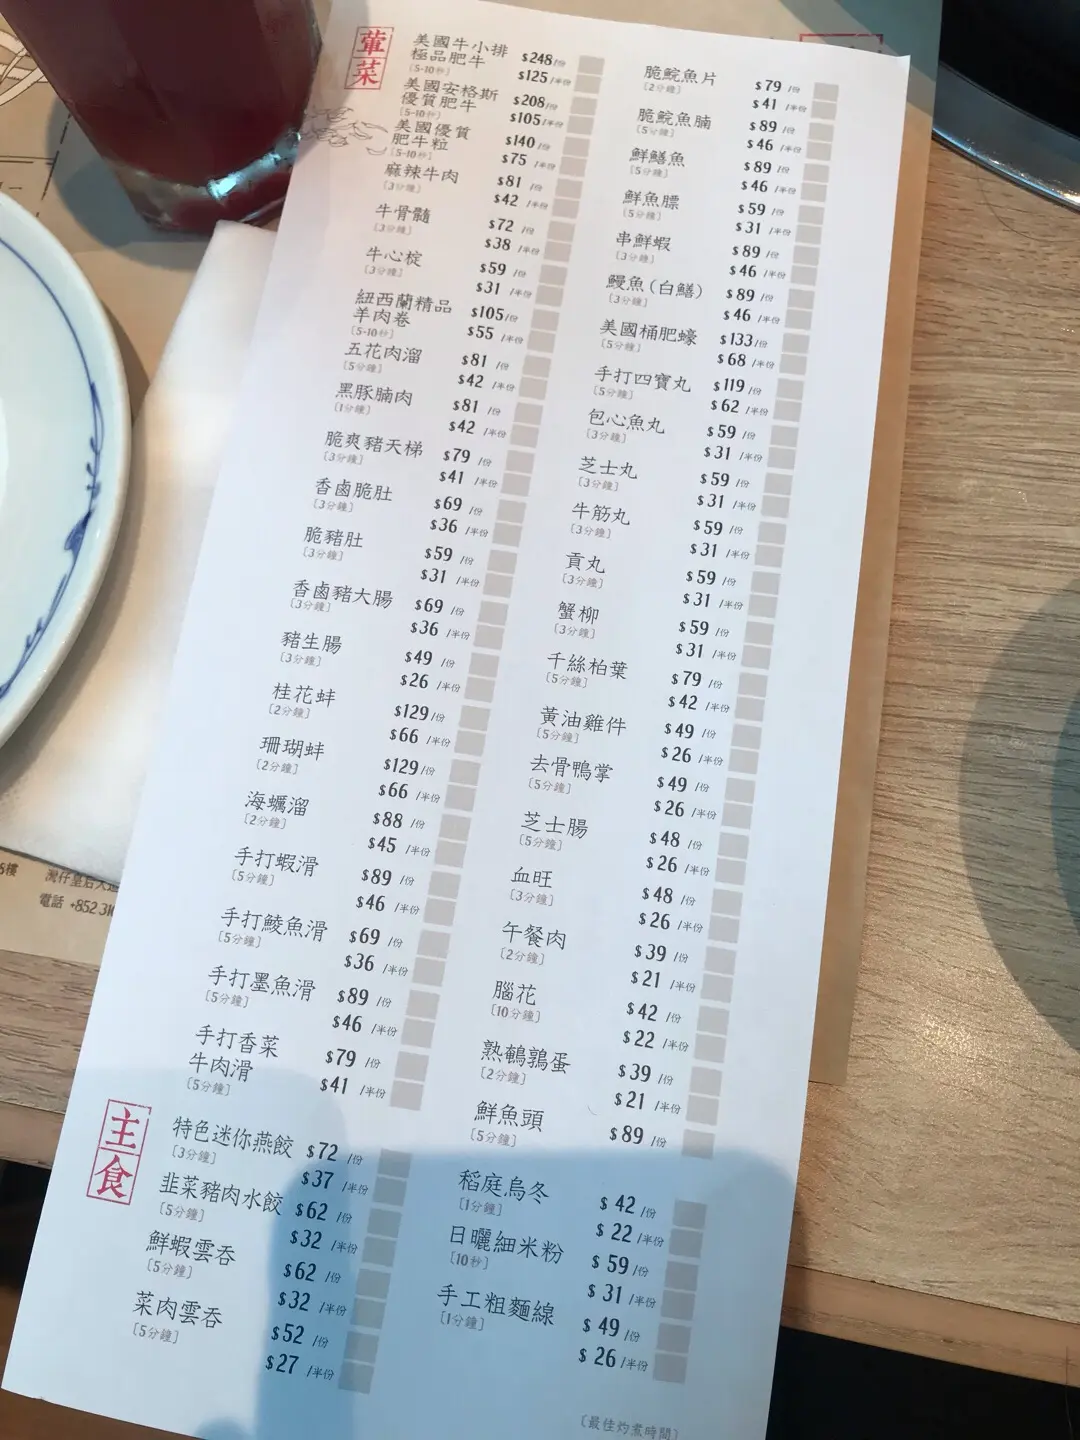 葷菜
美國牛小排
極品肥牛
[5-10秒]
$248/份
$125/半份
美國安格斯
優質肥牛
[5-10秒]
$208/份
$105/半份
美國優質
肥牛粒
[5-10秒]
$140/份
$75/半份
麻辣牛肉
[3分鐘]
$81/份
$42/半份
牛骨髓
[3分鐘]
$72/份
$38/半份
牛心椗
[3分鐘]
$59/份
$31/半份
紐西蘭精品
羊肉卷
[5-10秒]
$105/份
$55/半份
五花肉溜
[5分鐘]
$81/份
$42/半份
黑豚腩肉
[1分鐘]
$81/份
$42/半份
脆爽豬天梯
[3分鐘]
$79/份
$41/半份
香鹵脆肚
[3分鐘]
$69/份
$36/半份
脆豬肚
[3分鐘]
$59/份
$31/半份
香鹵豬大腸
[3分鐘]
$69/份
$36/半份
豬生腸
[3分鐘]
$49/份
$26/半份
桂花蚌
[2分鐘]
$129/份
$66/半份
珊瑚蚌
[2分鐘]
$129/份
$66/半份
海蠣溜
[2分鐘]
$88/份
$45/半份
手打蝦滑
[5分鐘]
$89/份
$46/半份
手打鯪魚滑
[5分鐘]
$69/份
$36/半份
手打墨魚滑
[5分鐘]
$89/份
$46/半份
手打香菜
牛肉滑
[5分鐘]
$79/份
$41/半份
脆鯇魚片
[2分鐘]
$79/份
$41/半份
脆鯇魚腩
[5分鐘]
$89/份
$46/半份
鮮鱔魚
[5分鐘]
$89/份
$46/半份
鮮魚膘
[5分鐘]
$59/份
$31/半份
串鮮蝦
[3分鐘]
$89/份
$46/半份
鰻魚(白鱔)
[3分鐘]
$89/份
$46/半份
美國桶肥蠔
[5分鐘]
$133/份
$68/半份
手打四寶丸
[5分鐘]
$119/份
$62/半份
包心魚丸
[3分鐘]
$59/份
$31/半份
芝士丸
[3分鐘]
$59/份
$31/半份
牛筋丸
[3分鐘]
$59/份
$31/半份
貢丸
[3分鐘]
$59/份
$31/半份
蟹柳
[3分鐘]
$59/份
$31/半份
千絲柏葉
[5分鐘]
$79/份
$42/半份
黃油雞件
[5分鐘]
$49/份
$26/半份
去骨鴨掌
[5分鐘]
$49/份
$26/半份
芝士腸
[5分鐘]
$48/份
$26/半份
血旺
[3分鐘]
$48/份
$26/半份
午餐肉
[2分鐘]
$39/份
$21/半份
腦花
[10分鐘]
$42/份
$22/半份
熟鵪鶉蛋
[2分鐘]
$39/份
$21/半份
鮮魚頭
[5分鐘]
$89/份
主食
特色迷你燕餃
[3分鐘]
$72/份
$37/半份
韭菜豬肉水餃
[5分鐘]
$62/份
$32/半份
鮮蝦雲吞
[5分鐘]
$62/份
$32/半份
菜肉雲吞
[5分鐘]
$52/份
$27/半份
稻庭烏冬
[1分鐘]
$42/份
$22/半份
日曬細米粉
[10秒]
$59/份
$31/半份
手工粗麵線
[1分鐘]
$49/份
$26/半份
[最佳灼煮時間]
樓
灣仔皇后大道
電話 +852 31